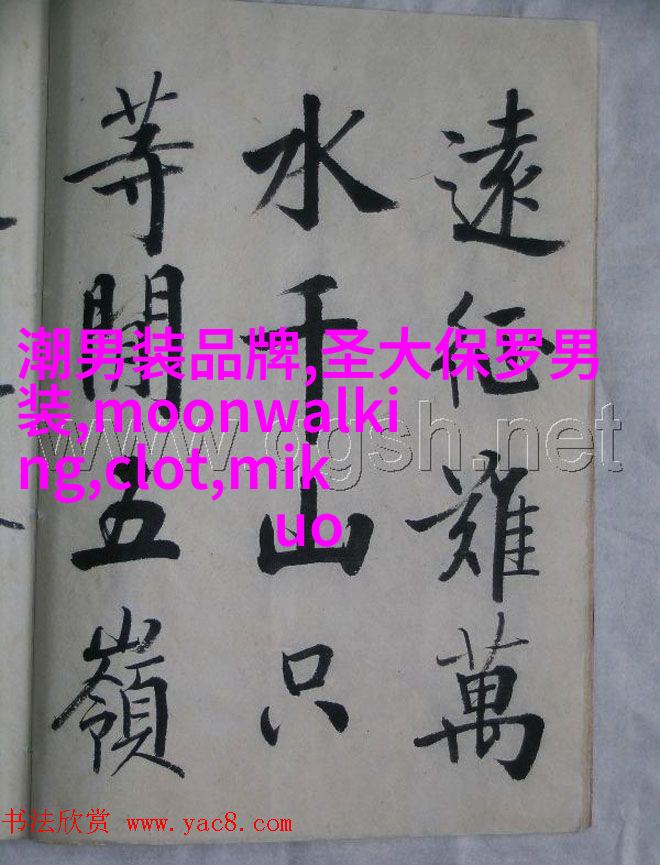 遠征難萬
水千山只
等閒五嶺
潮男装品牌,圣大保罗男
装,moonwalki
ng,clot,mik
uo
书法欣赏 www.yac8.com